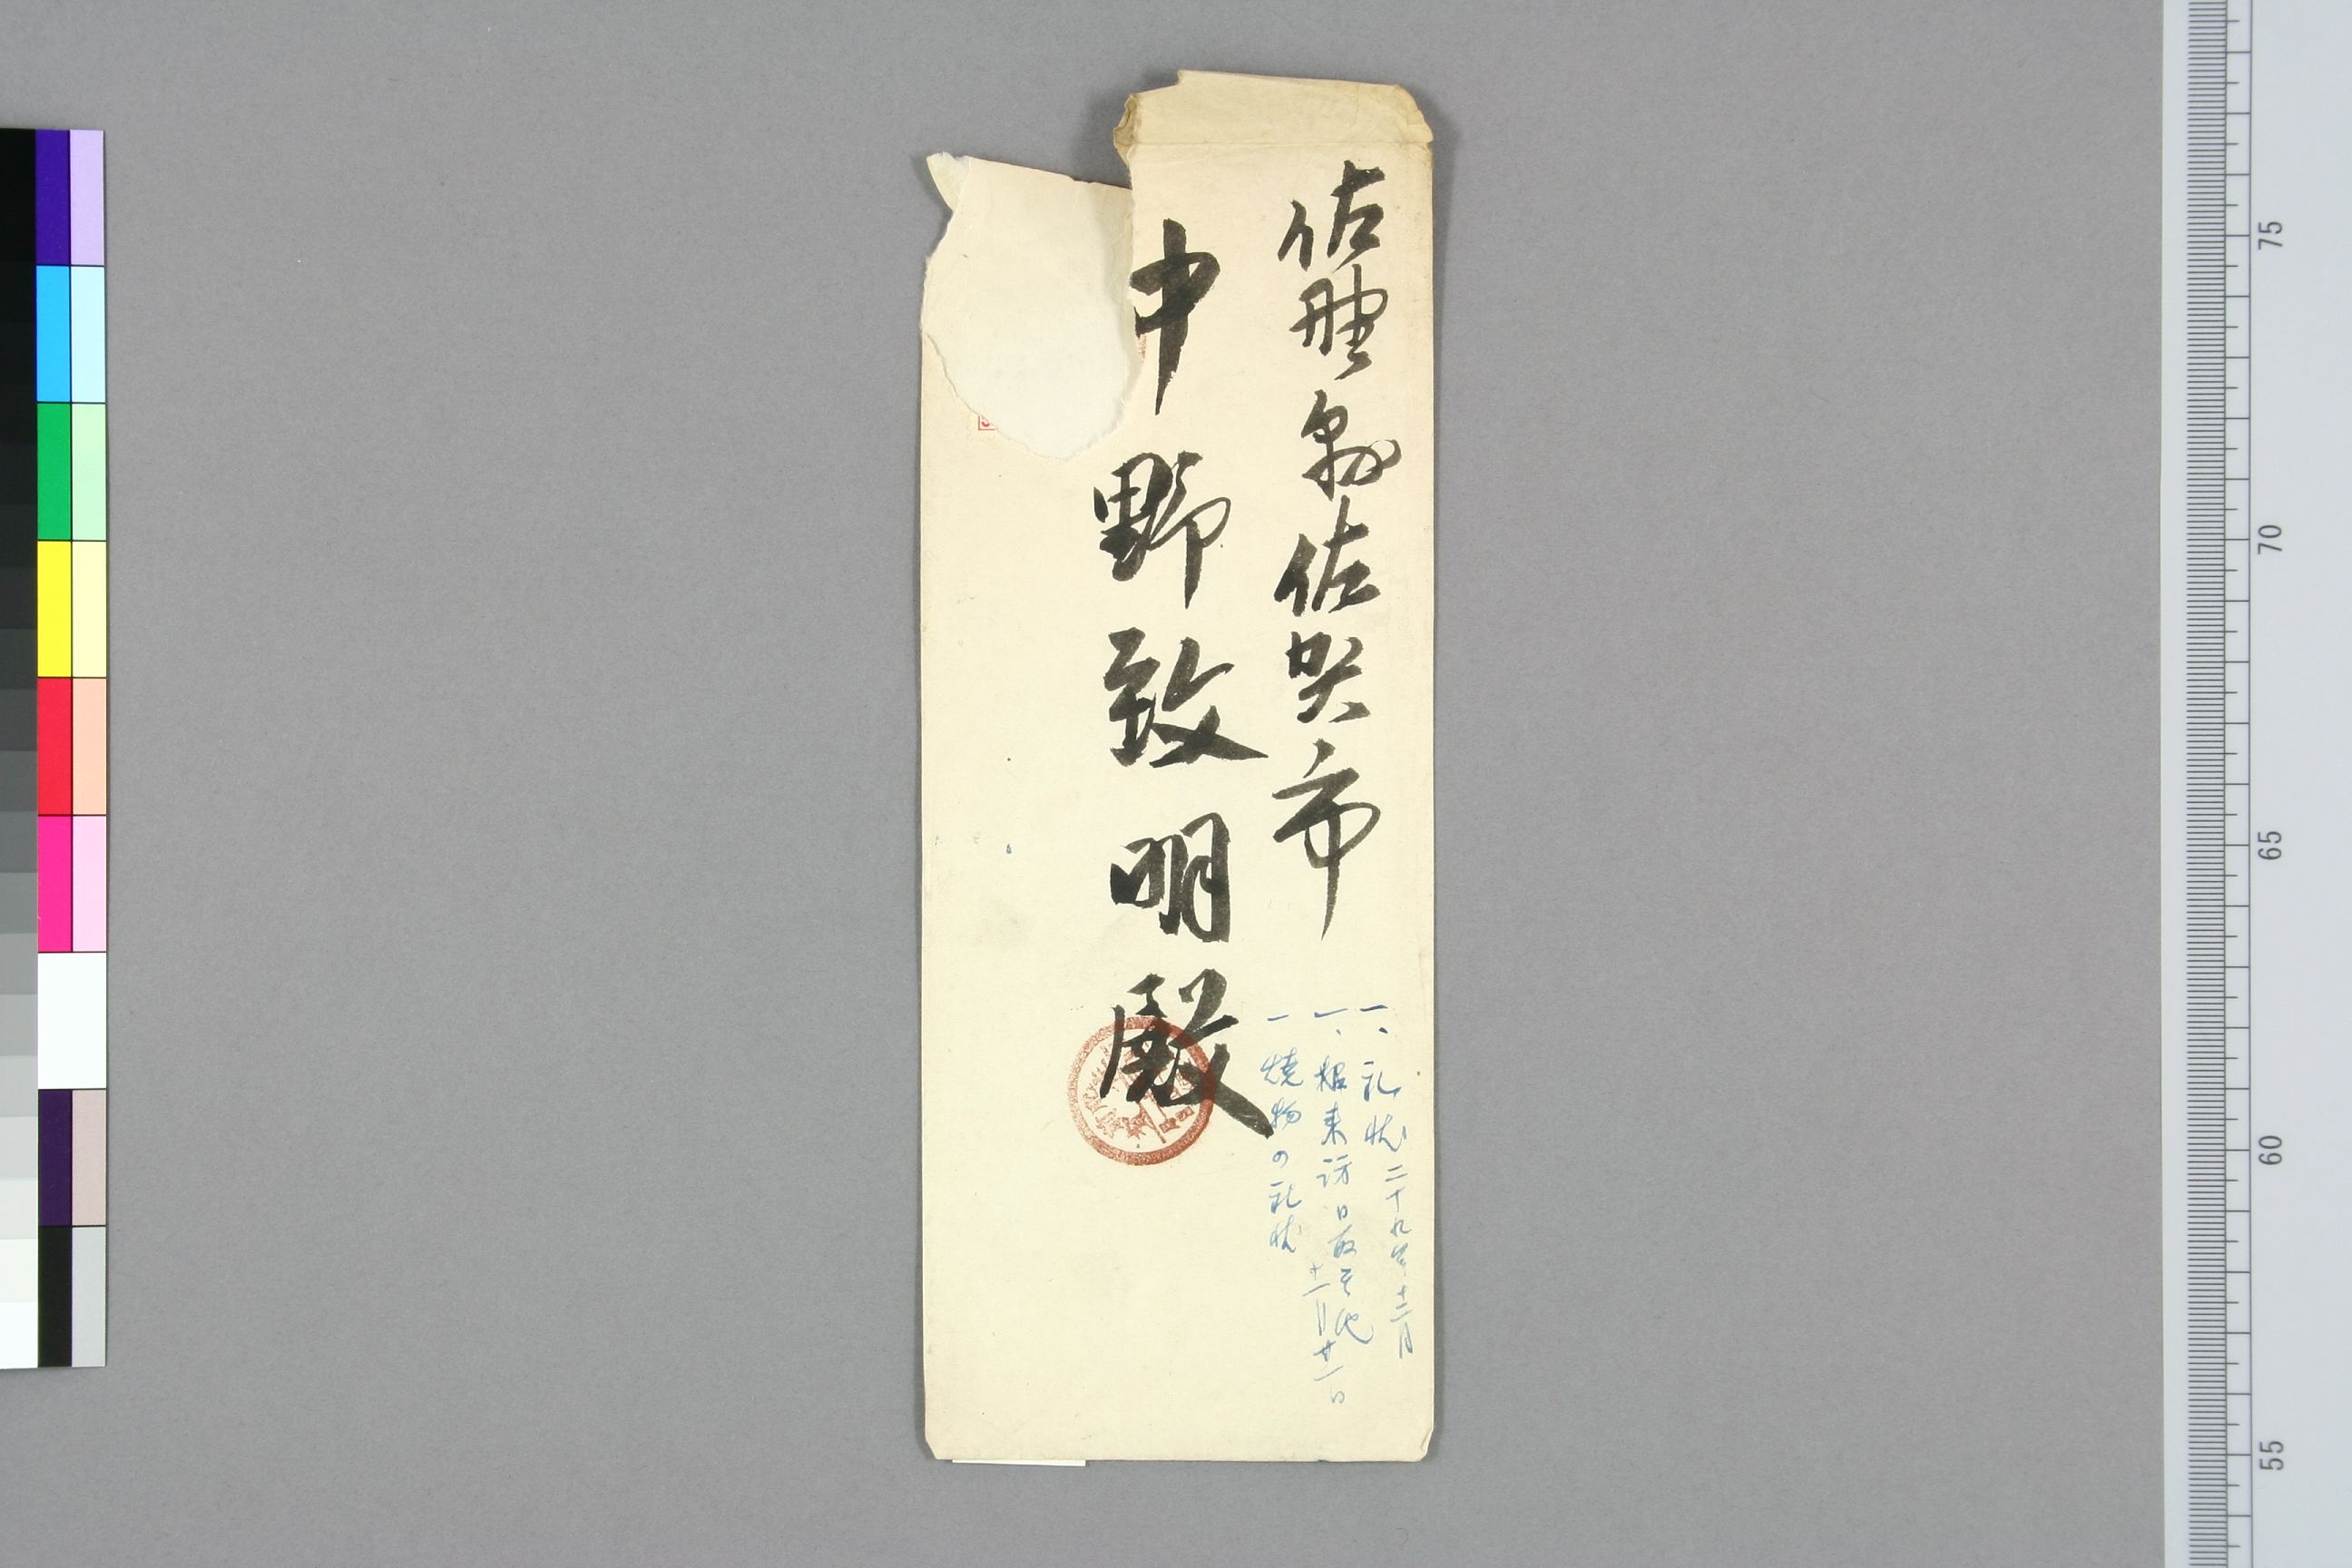 佐賀縣佐賀市
中野致明殿
一、礼状二十九年十二月
一、来訪日取其他
十一月廿一日
一焼物の礼状
75
70
65
60
55